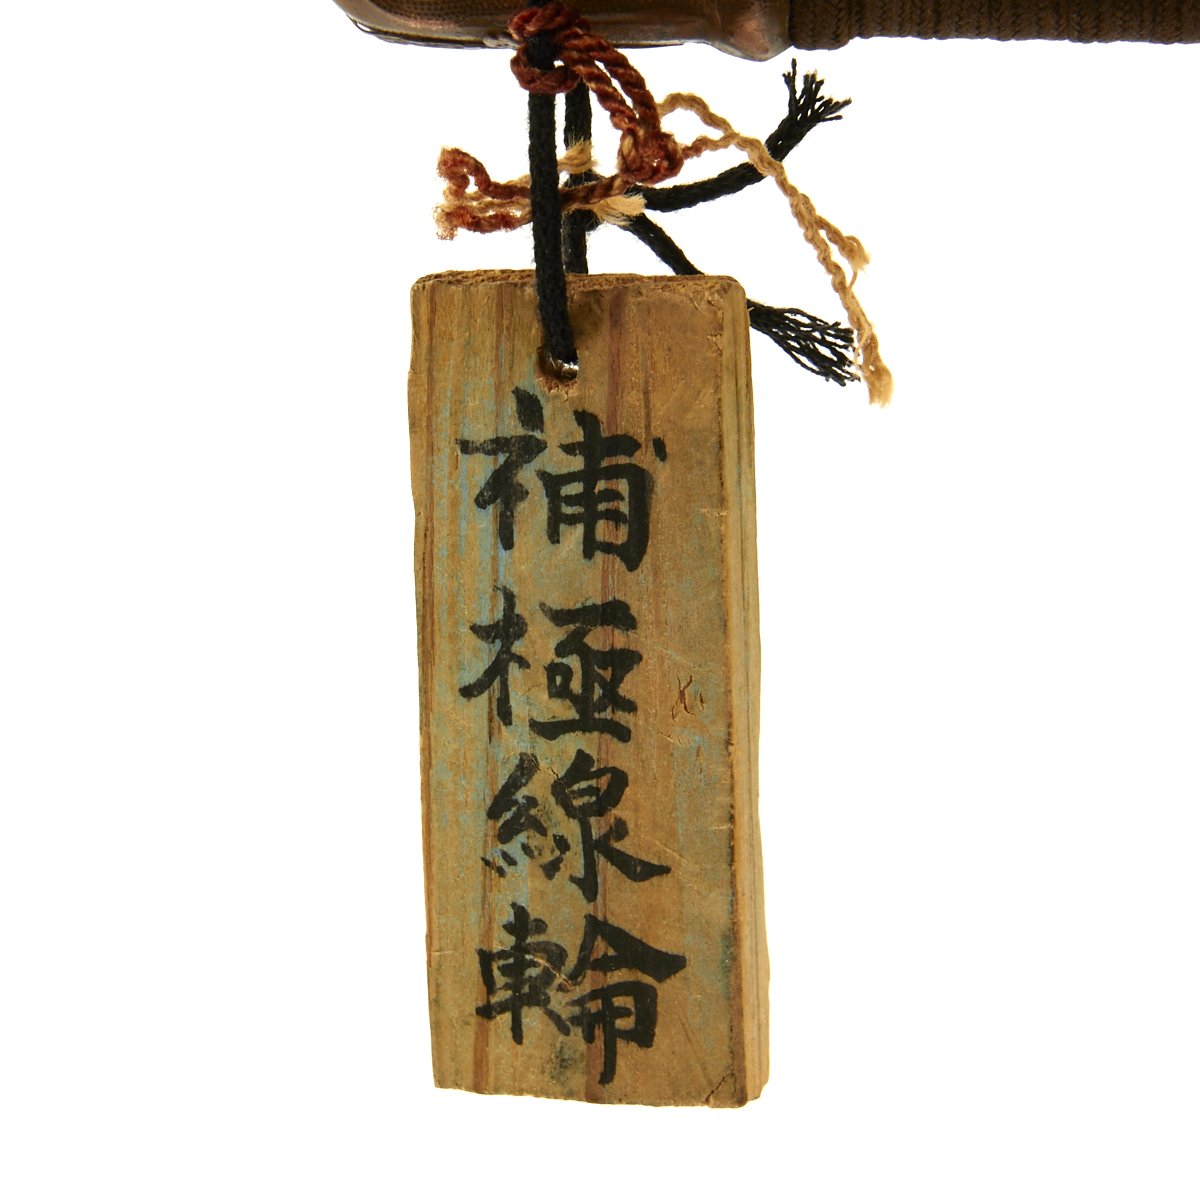 補極線輪